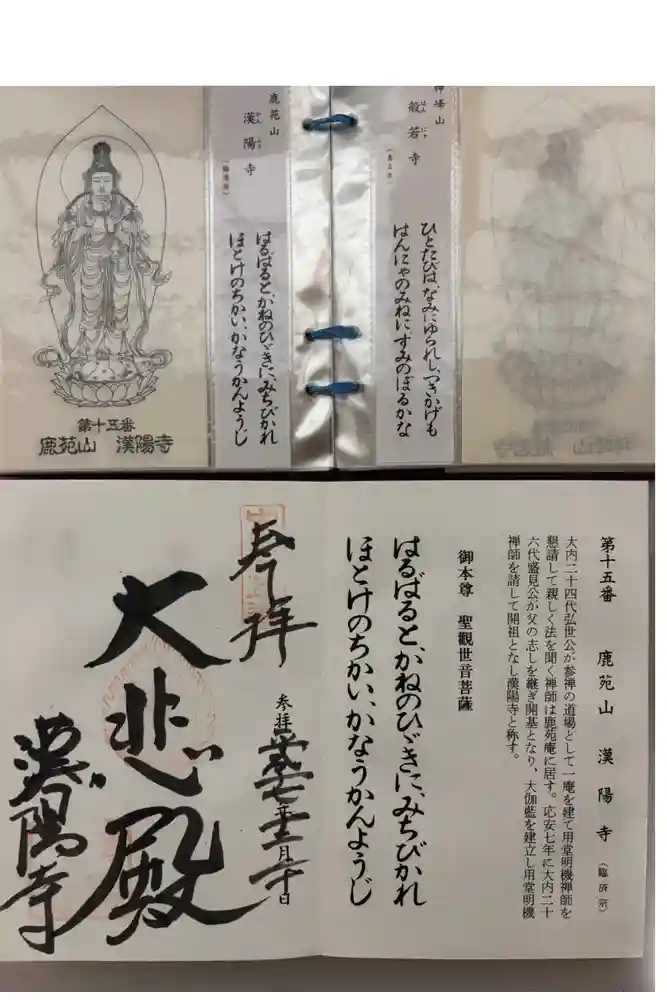 鹿苑山
漢陽寺
かん よう
(臨済宗)
はるばると、かねのひゞきに、みちびかれ
ほとけのちかい、かなうかんようじ
第十五番
鹿苑山 漢陽寺
神峰山
般若寺
はん にゃ
ひとたびは、なみにゆられし、つきかげも
はんにゃのみねに、すみのぼるかな
第十五番 鹿苑山 漢陽寺 (臨済宗)
大内二十四代弘世公が参禅の道場として一庵を建て用堂明機禅師を
懇請して親しく法を聞く禅師は鹿苑庵に居す。応安七年に大内二十
六代盛見公が父の志しを継ぎ開基となり、大伽藍を建立し用堂明機
禅師を請して開祖となし漢陽寺と称す。
御本尊 聖觀世音菩薩
はるばると、かねのひゞきに、みちびかれ
ほとけのちかい、かなうかんようじ
奉拝
参拝
年
月
日
大悲殿
漢陽寺